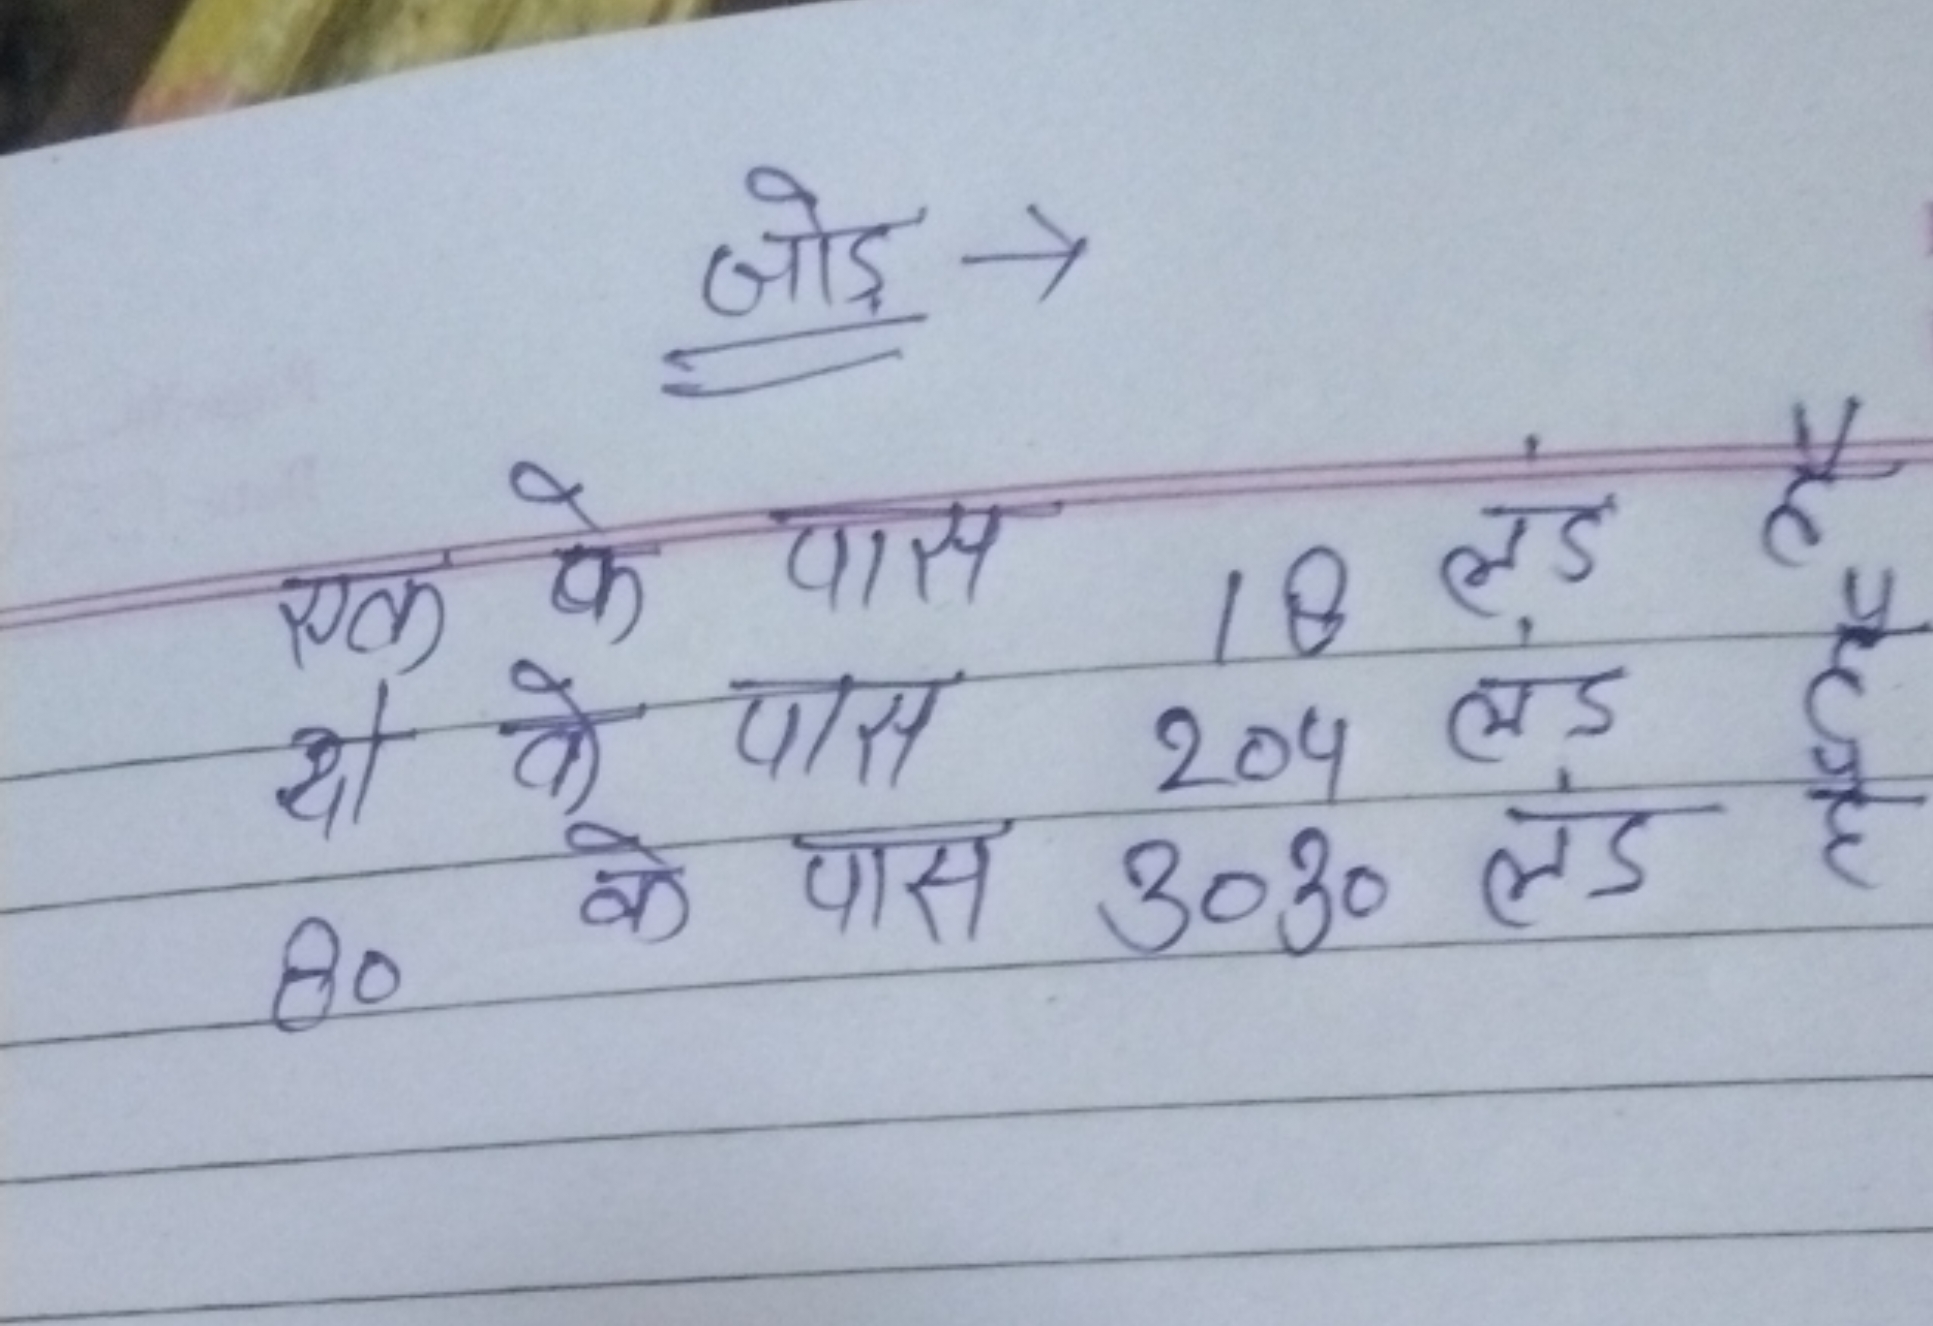 जोड़ →
एक के पास 18 लंड है
दो के पास 204 लंड है
80 के पास 3030 लंड है